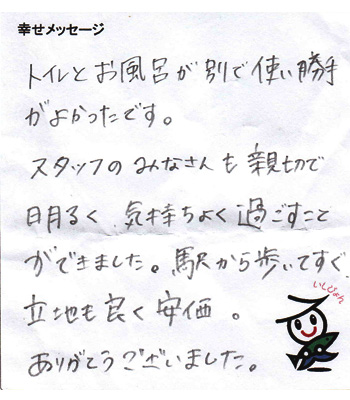 幸せメッセージ
トイレとお風呂が別で使い勝手
がよかったです。
スタッフのみなさんも親切で
明るく 気持ちよく過ごすこと
ができました。駅から歩いてすぐ、
立地も良く安価。
いしぴょん
ありがとうございました。